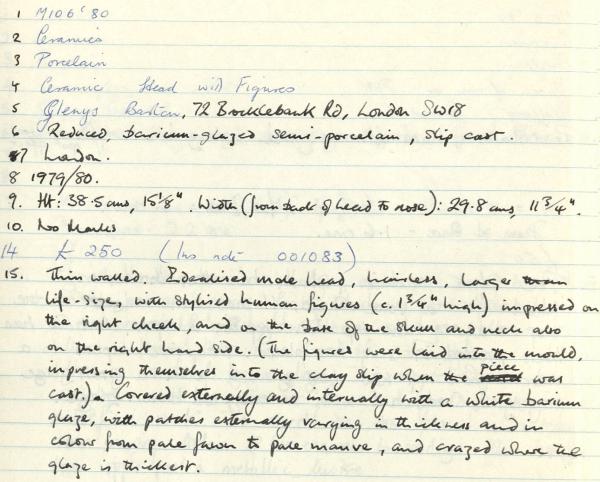 1 M106'80
2 Ceramics
3 Porcelain
4 Ceramic Head with Figures
5 Glenys Barton, 72 Brocklebank Rd, London SW18
6 Reduced, barium-glazed semi-porcelain, slip cast.
7 London.
8 1979/80.
9. Ht: 38.5 cms, 15 1/8". Width (from back of head to nose): 29.8 cms, 11 3/4".
10. No Marks
14 £ 250 (Ins note 001083)
15. Thin walled. Idealised male head, hairless, larger than
life-size, with stylised human figures (c. 1 3/4" high) impressed on
the right cheek, and on the base of the skull and neck also
on the right hand side. (The figures were laid into the mould,
impressing themselves into the clay slip when the piece was
cast.). Covered externally and internally with a white barium
glaze, with patches externally varying in thickness and in
colour from pale fawn to pale mauve, and crazed where the
glaze is thickest.